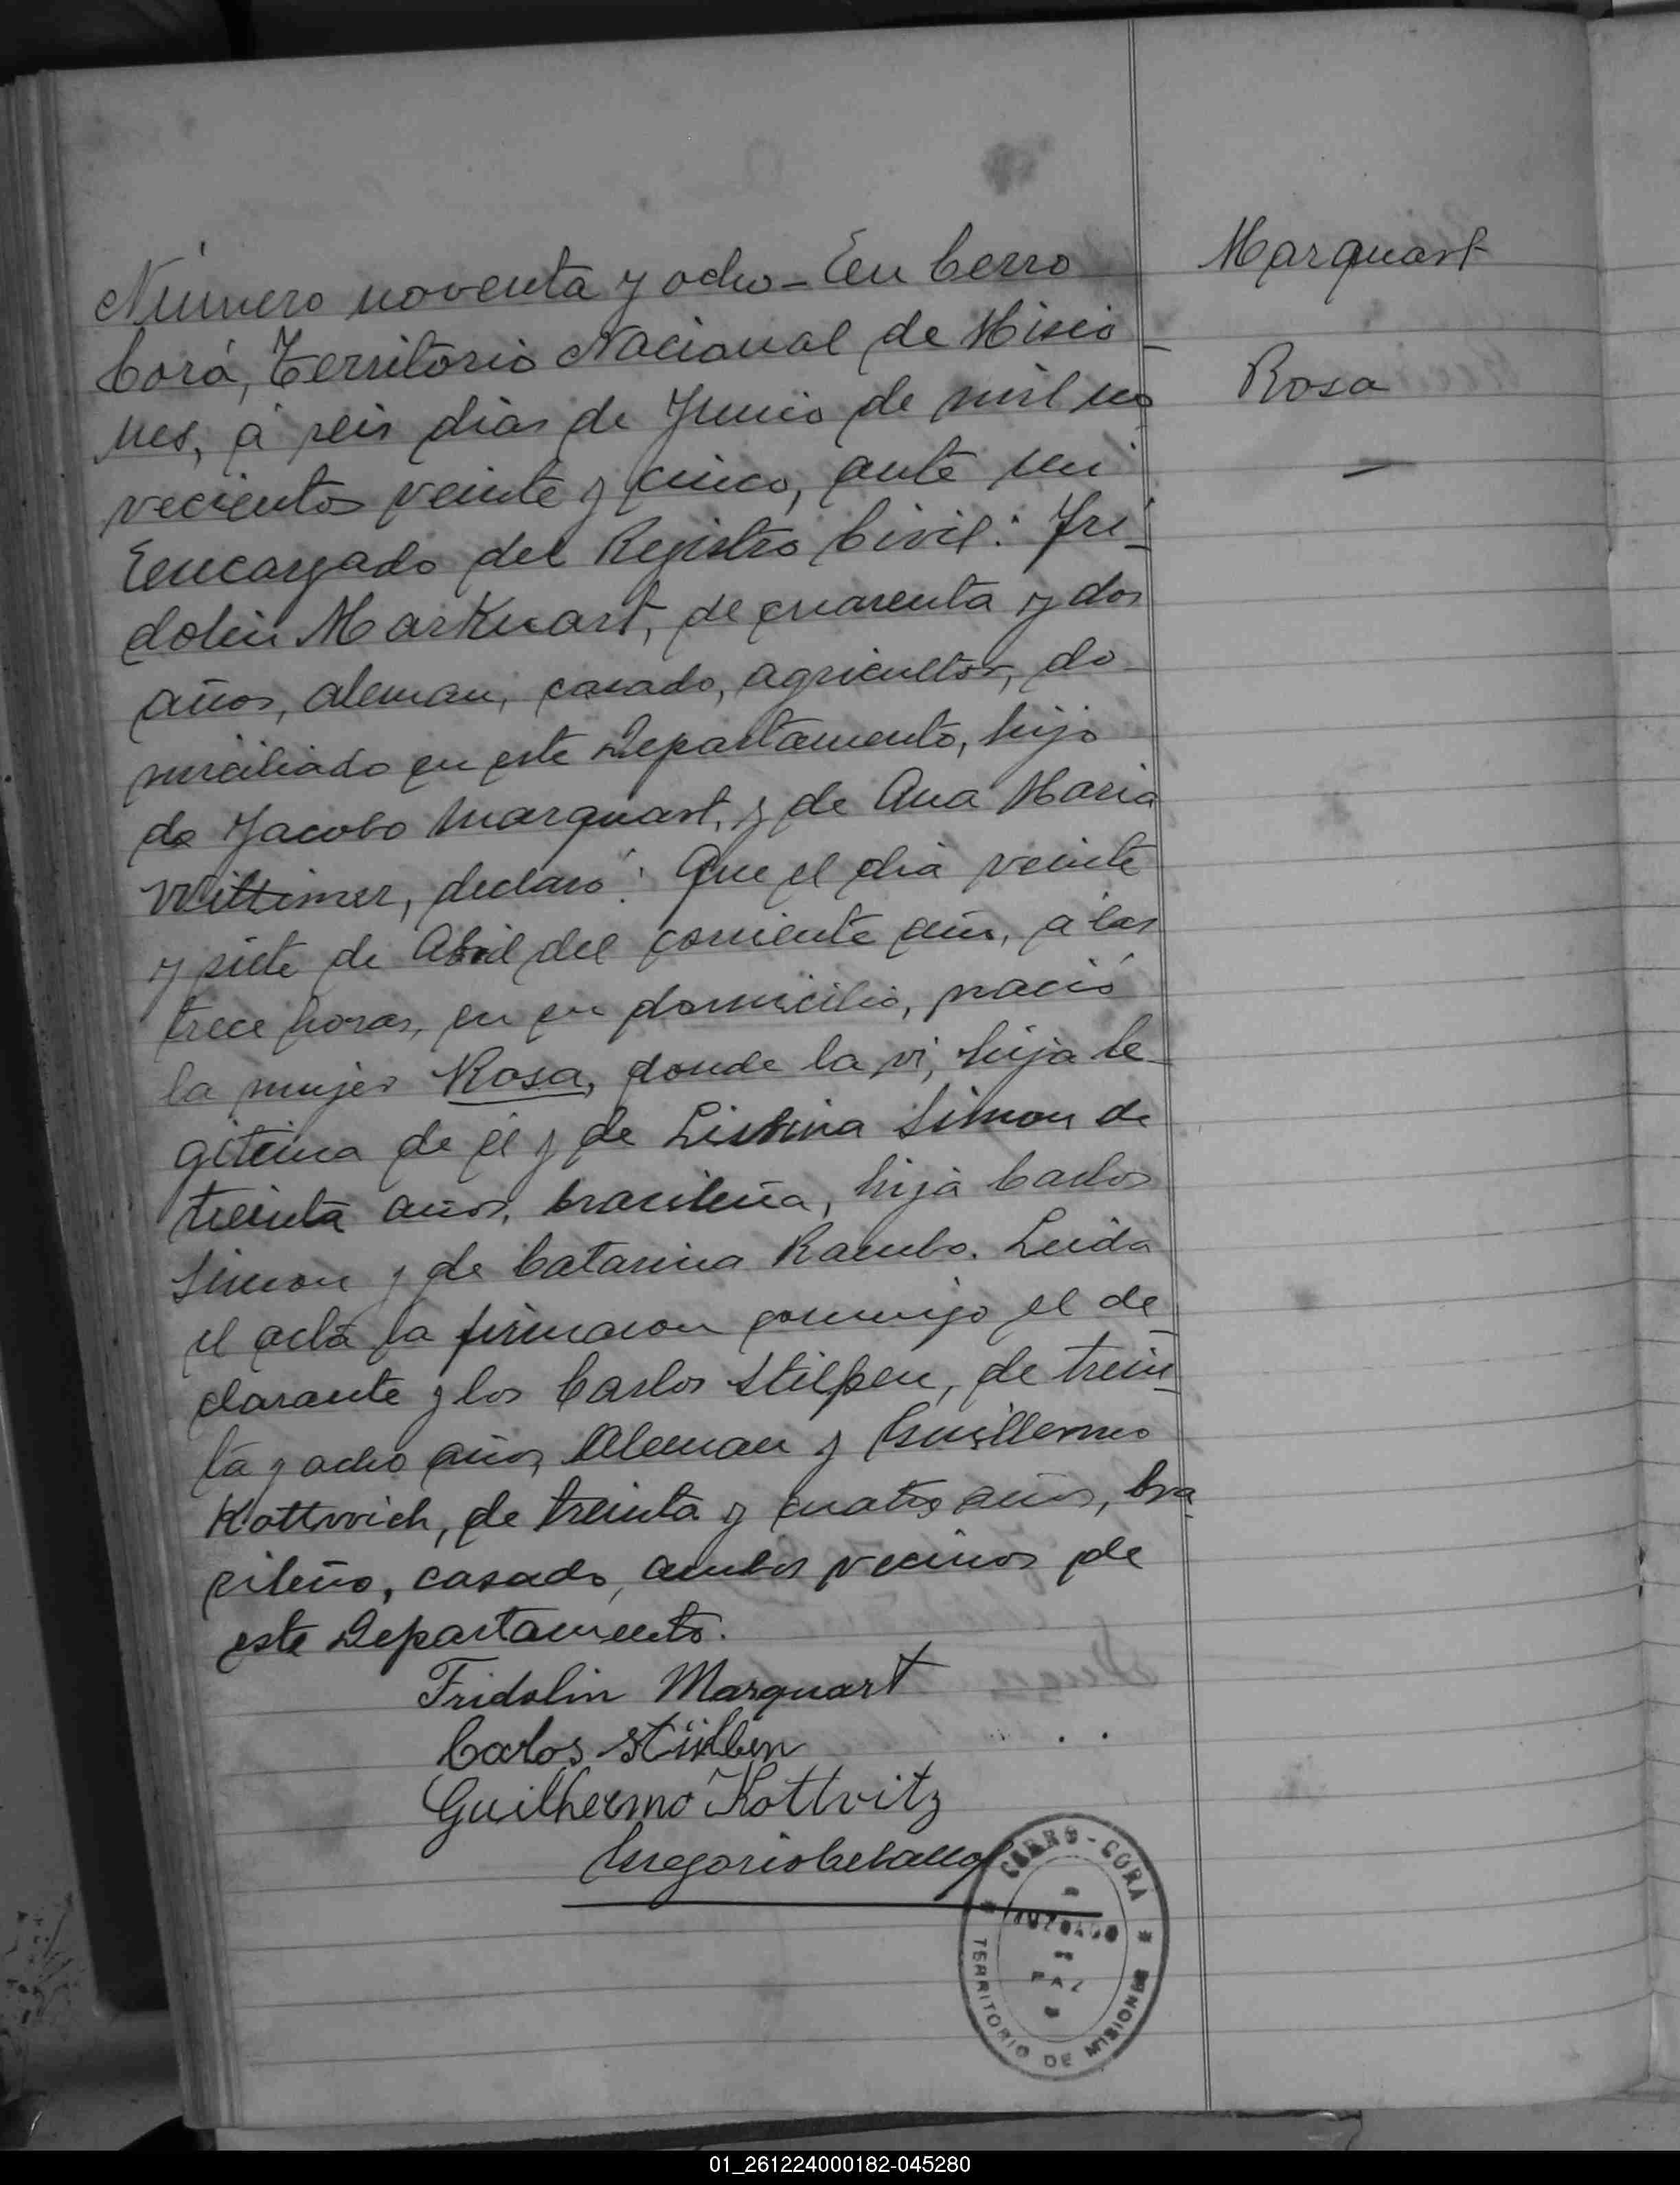 Número noventa y ocho - En Cerro
Marquart
Corá, Territorio Nacional de Misio-
Rosa
nes, á seis dias de Junio de mil no
vecientos veinte y cinco, ante mi
Encargado del Registro Civil: Fri-
dolin Markuart, de cuarenta y dos
años, aleman, casado, agricultor, do-
miciliado en este Departamento, hijo
de Jacobo Marquart, y de Ana Maria
Wittimer, declaró: Que el dia veinte
y siete de Abril del corriente año, a las
trece horas, en su domicilio, nació
la mujer Rosa, donde la vi, hija le-
gitima de él y de Simon de
treinta años, brasileña, hija Carlos
Simon y de Catarina Rambo. Leida
el acta la firmaron conmigo el de-
clarante y los Carlos Stilpen, de trein-
ta y ocho años, Aleman y Guillermo
Kottwich, de treinta y cuatro años, bra-
sileño, casado, ambos vecinos de
este Departamento.
Fridolin Marquart
Carlos
Guilhermo Kottvitz
Gregorio
CERRO-CORÁ
JUZGADO
PAZ
TERRITORIO DE MISIONES
01_261224000182-045280